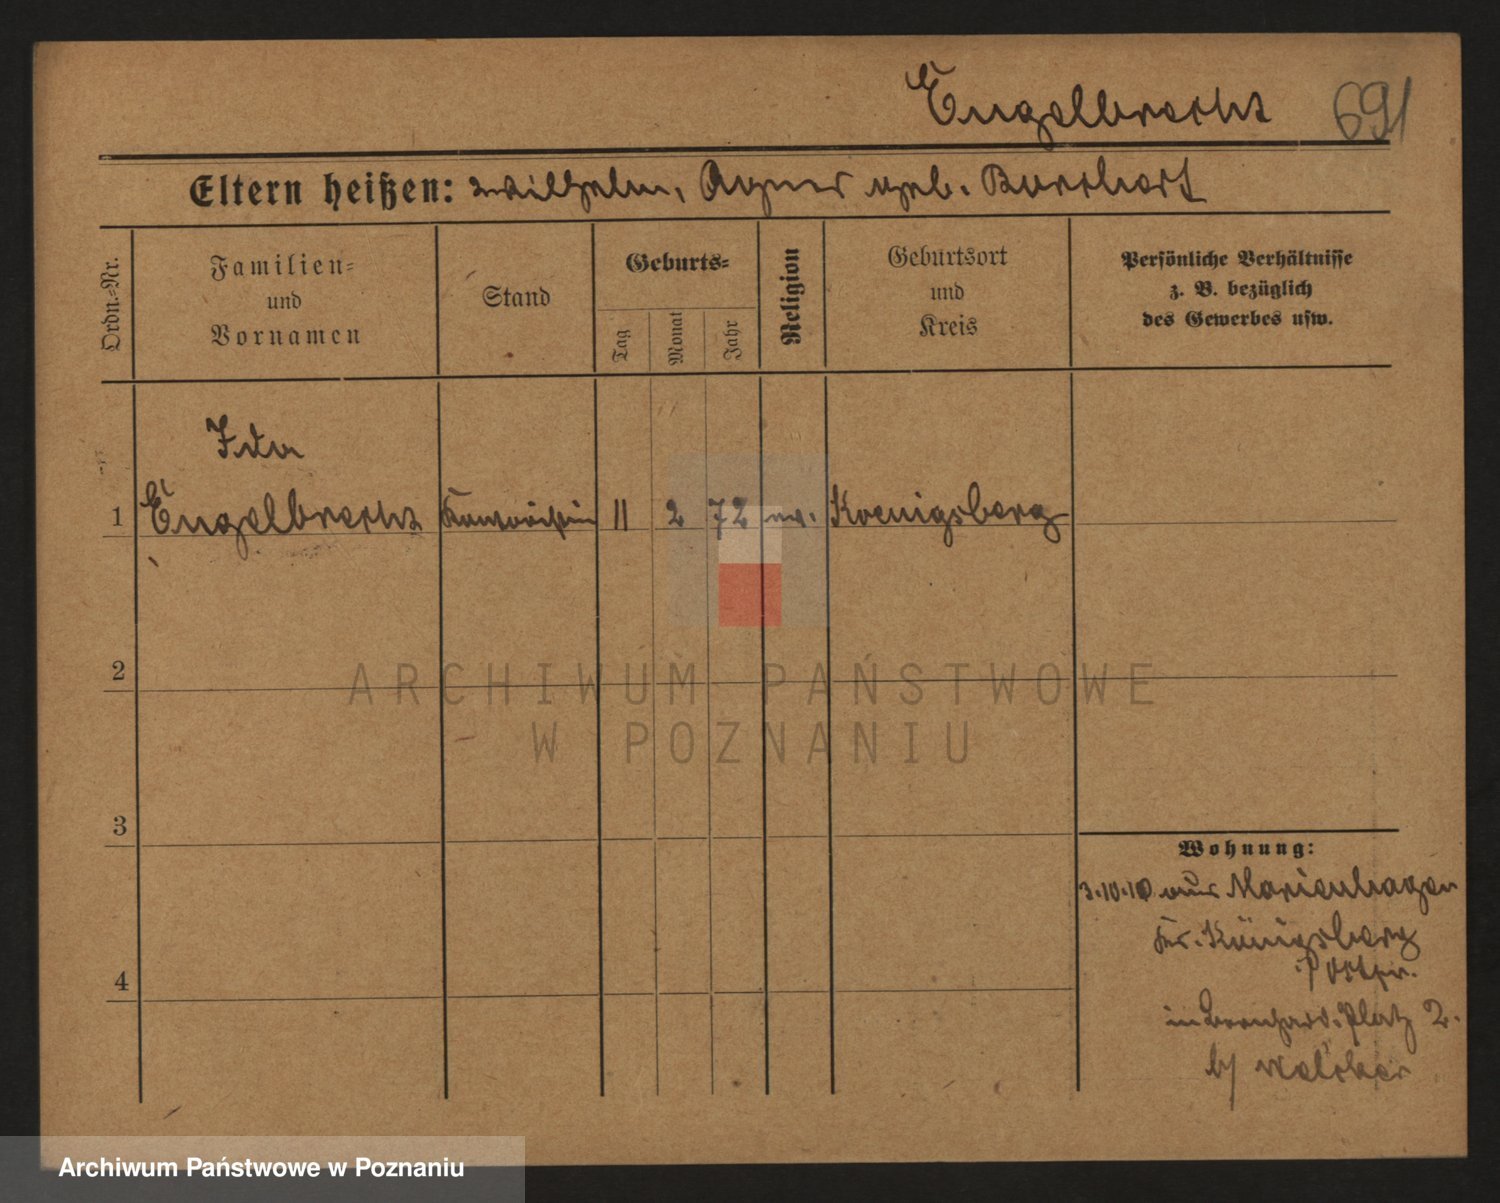 Engelbrecht 691
Eltern heißen: Wilhelm, Agnes geb. Borchert
Ordn.-Nr.
Familien-
und
Vornamen
Stand
Geburts-
Tag
Monat
Jahr
Religion
Geburtsort
und
Kreis
Persönliche Verhältnisse
z. B. bezüglich
des Gewerbes usw.
Ida
1 Engelbrecht 11 2 72 ev. Koenigsberg
2
3
4
Wohnung:
3.10.10 aus Marienhagen
Kr. Königsberg
Ostpr.
in Bernhard. Platz 2.
b/
ARCHIWUM PAŃSTWOWE
W POZNANIU
Archiwum Państwowe w Poznaniu